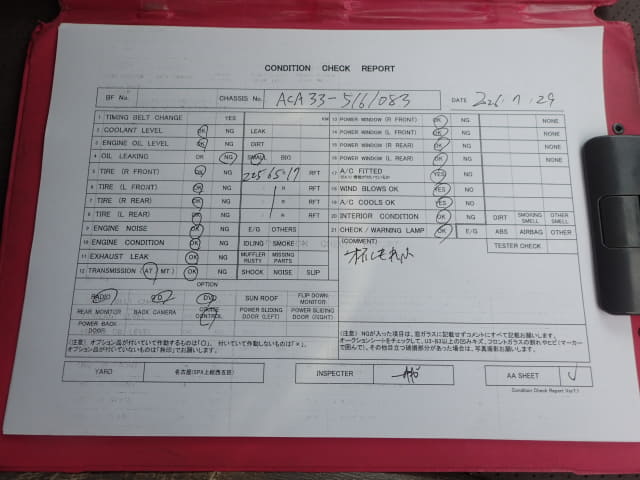 CONDITION CHECK REPORT
BF No. CHASSIS No. ACA33-5161083 DATE
1 TIMING BELT CHANGE YES KM
2 COOLANT LEVEL OK NG LEAK
3 ENGINE OIL LEVEL OK NG DIRT
4 OIL LEAKING OK NG SMALL BIG
5 TIRE (R FRONT) OK NG 225 65 17 RFT
6 TIRE (L FRONT) OK NG R RFT
7 TIRE (R REAR) OK NG R RFT
8 TIRE (L REAR) OK NG R RFT
9 ENGINE NOISE OK NG E/G OTHERS
10 ENGINE CONDITION OK NG IDLING SMOKE
11 EXHAUST LEAK OK NG MUFFLER RUSTY MISSING PARTS
12 TRANSMISSION (AT MT) OK NG SHOCK NOISE SLIP
13 POWER WINDOW (R FRONT) OK NG NONE
14 POWER WINDOW (L FRONT) OK NG NONE
15 POWER WINDOW (R REAR) OK NG NONE
16 POWER WINDOW (L REAR) OK NG NONE
17 A/C FITTED YES NG
18 WIND BLOWS OK YES NG
19 A/C COOLS OK YES NG
20 INTERIOR CONDITION OK NG DIRT SMOKING SMELL OTHER SMELL
21 CHECK / WARNING LAMP OK E/G ABS AIRBAG OTHER
(COMMENT) TESTER CHECK
OPTION
RADIO CD DVD SUN ROOF FLIP DOWN MONITOR
REAR MONITOR BACK CAMERA CRUISE CONTROL POWER SLIDING DOOR (LEFT) POWER SLIDING DOOR (RIGHT)
POWER BACK DOOR
(注意) オプション品が付いていて作動するものは「○」、付いていて作動しないものは「×」、
オプション品が付いていないものは「無印」でお願いします。
(注意) NGが入った項目は、窓ガラスに記載せずコメントにすべて記載お願いします。
オークションシートをチェックして、U3・B3以上の凹みキズ、フロントガラスの割れやヒビ(マーカー
で囲んで)、その他目立つ破損部分があった場合は、写真撮影お願いします。
YARD INSPECTER AA SHEET
Condition Check Report Ver7.1